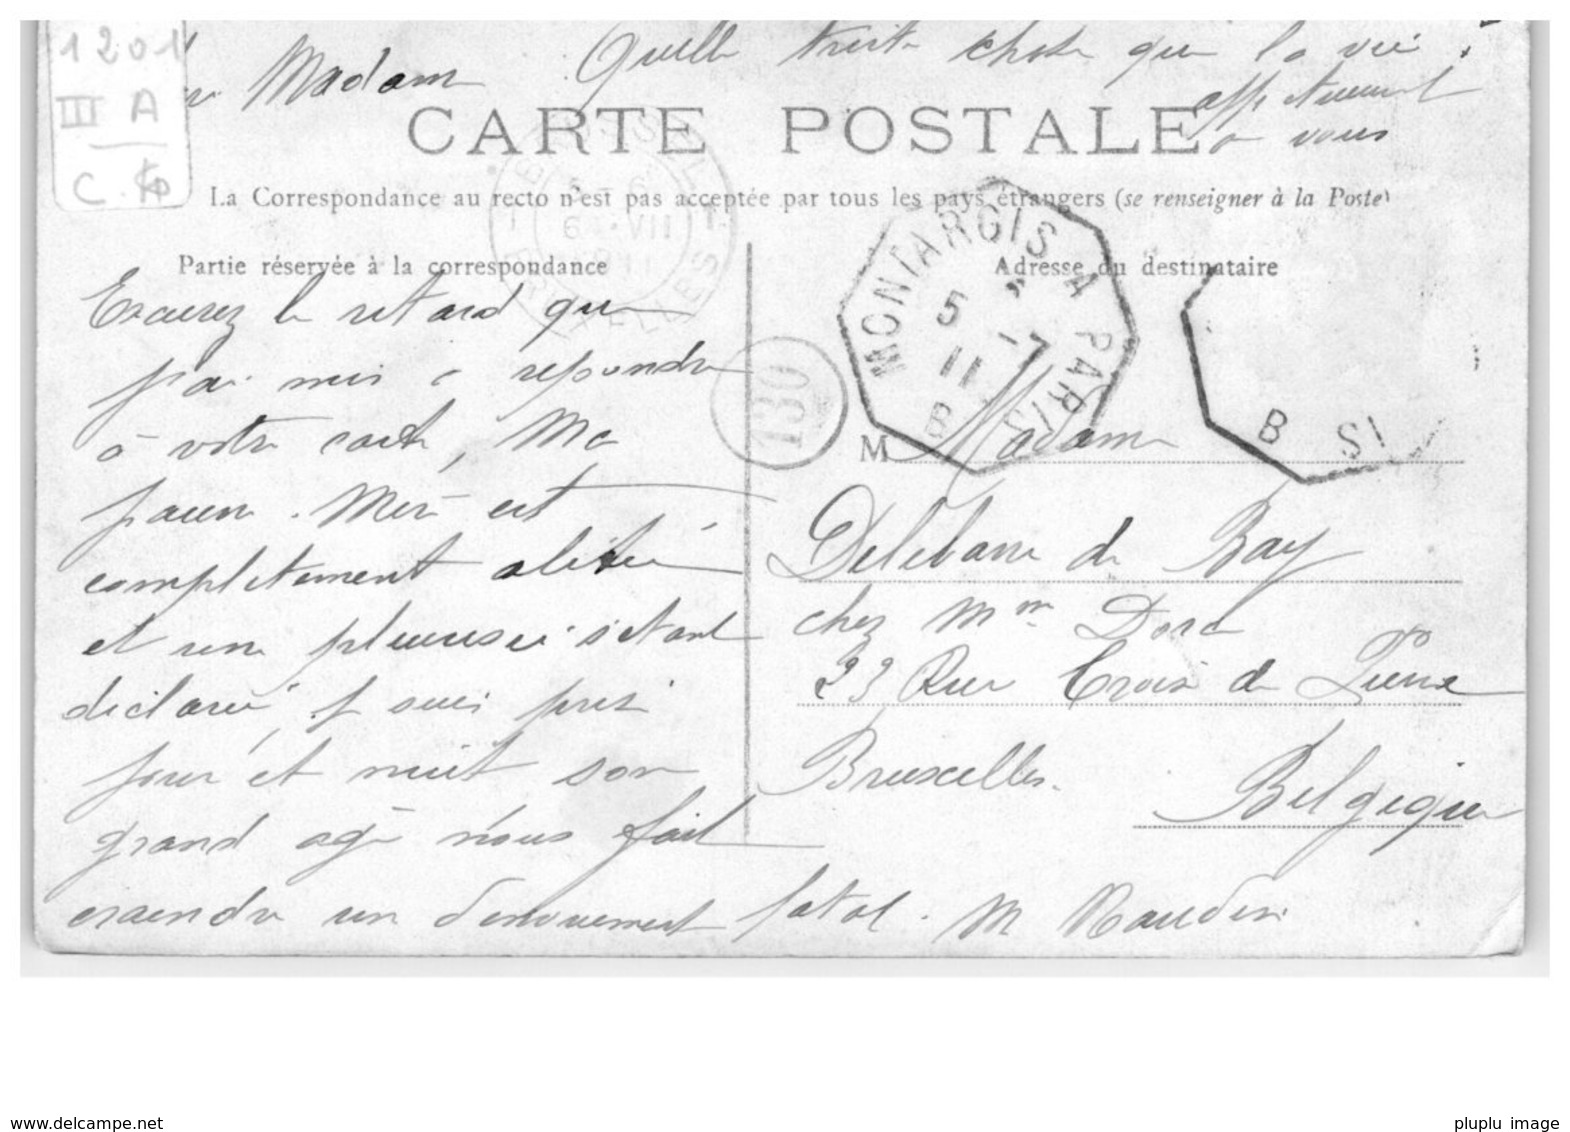 1201
III A
C.
Madame Quelle triste chose que la vie !
affectueusement
à vous
CARTE POSTALE
La Correspondance au recto n'est pas acceptée par tous les pays étrangers (se renseigner à la Poste)
Partie réservée à la correspondance
Excusez le retard que
j'ai mis à repondre
à votre carte, Ma
pauvre Mère est
completement alitée
et une pleuresie s'etant
declarée, je suis près
jour et nuit son
grand age nous fait
craindre un denouement fatal. M Naudin
Adresse du destinataire
M Madame
Delebarre de Bay
chez Mme Dora
23 Rue Croix de Pierre
Bruxelles.
Belgique
MONTARGIS A PARIS
5 -7
11
B
130
BRUXELLES
6 VII
B SI
www.delcampe.net
pluplu image